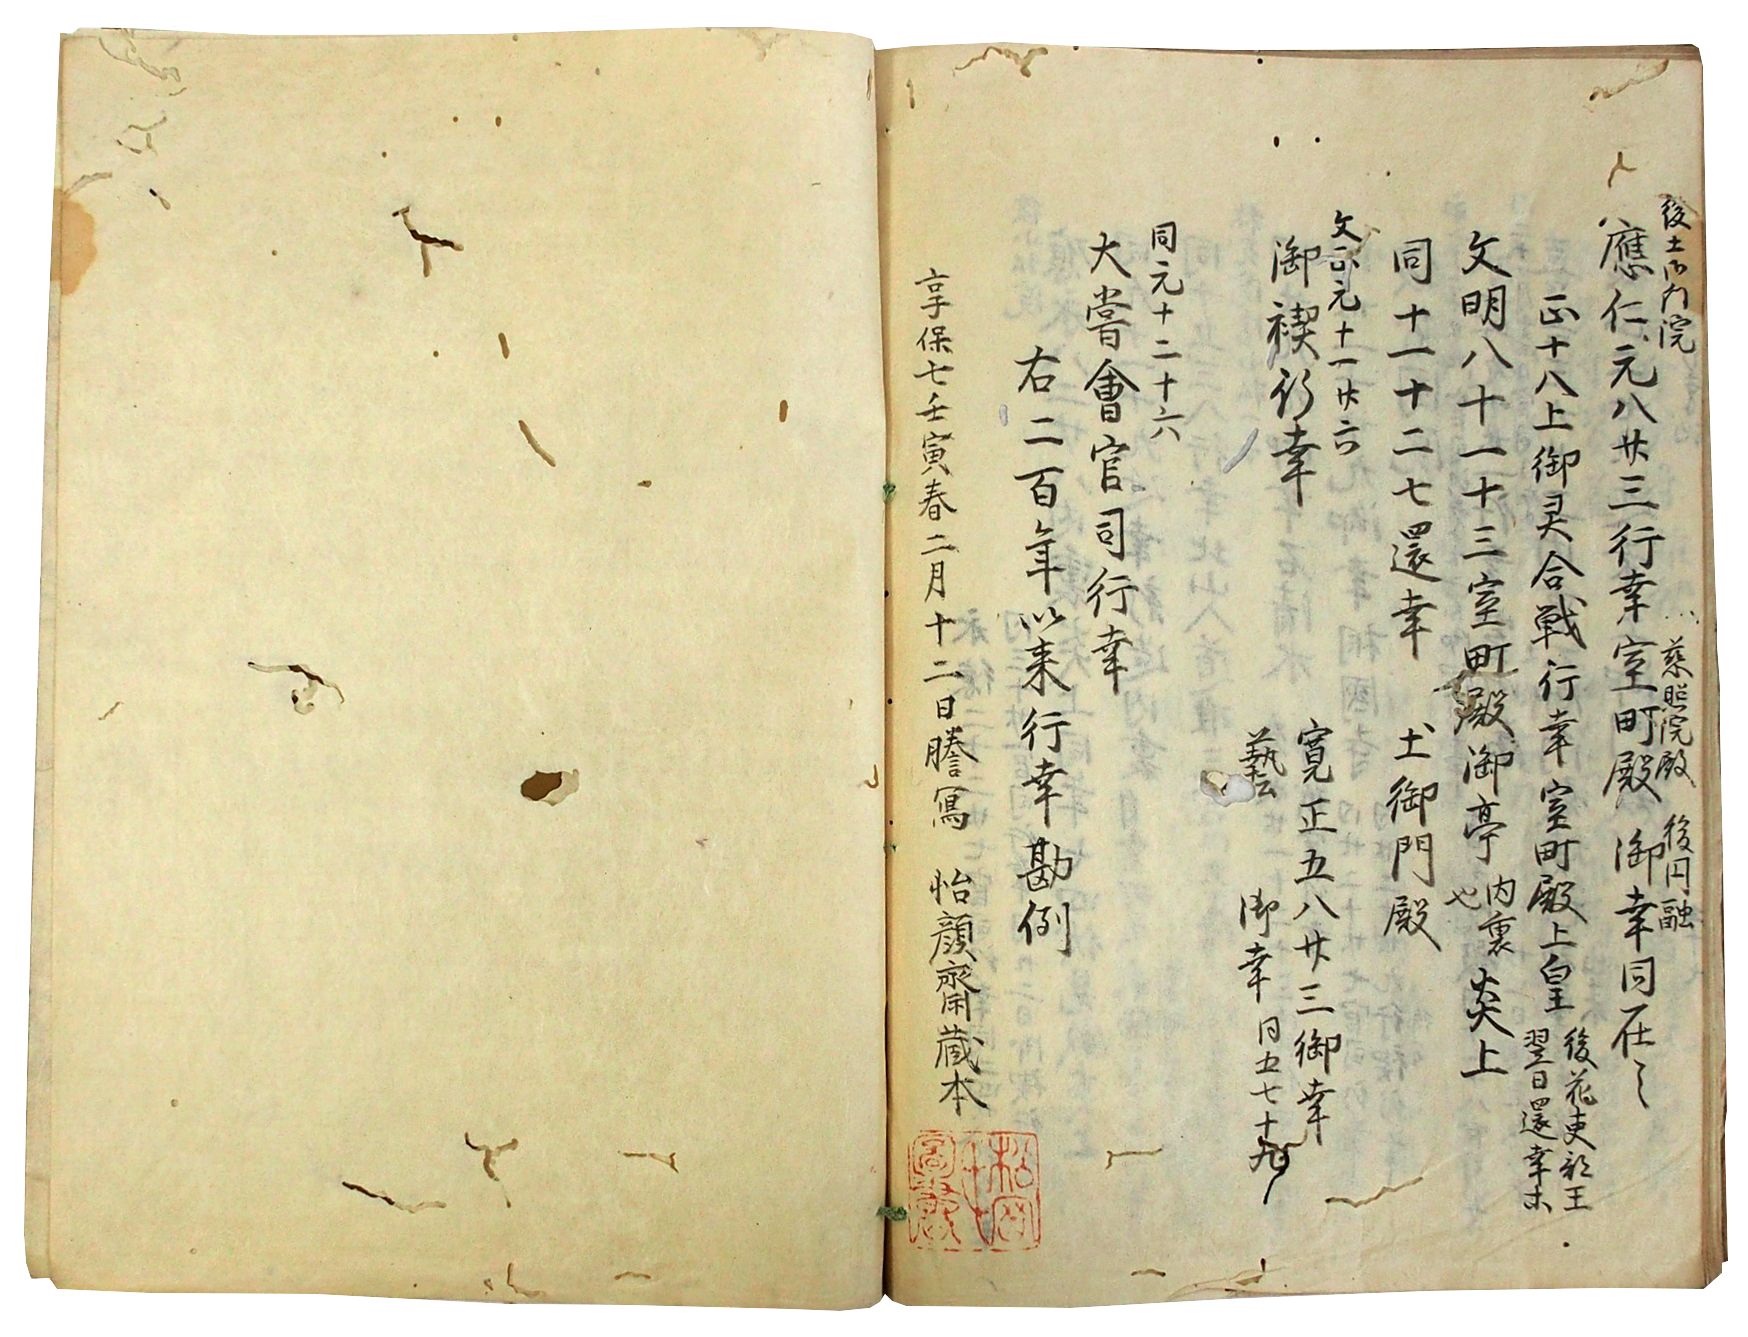 後土御門院
應仁元八廿三行幸室町殿 御幸同在之
慈照院殿 後円融
正十八上御灵合戦行幸室町殿上皇
後花吏部王
翌日還幸
文明八十一十三室町殿御亭
内裏
也
炎上
同十一十二七還幸 土御門殿
文正元十一廿六
御禊行幸
寛正五八廿三御幸
藝
御幸 同五七十九
同元十二十六
大嘗會官司行幸
右二百年以来行幸勘例
享保七壬寅春二月十二日謄寫 怡顔齋蔵本